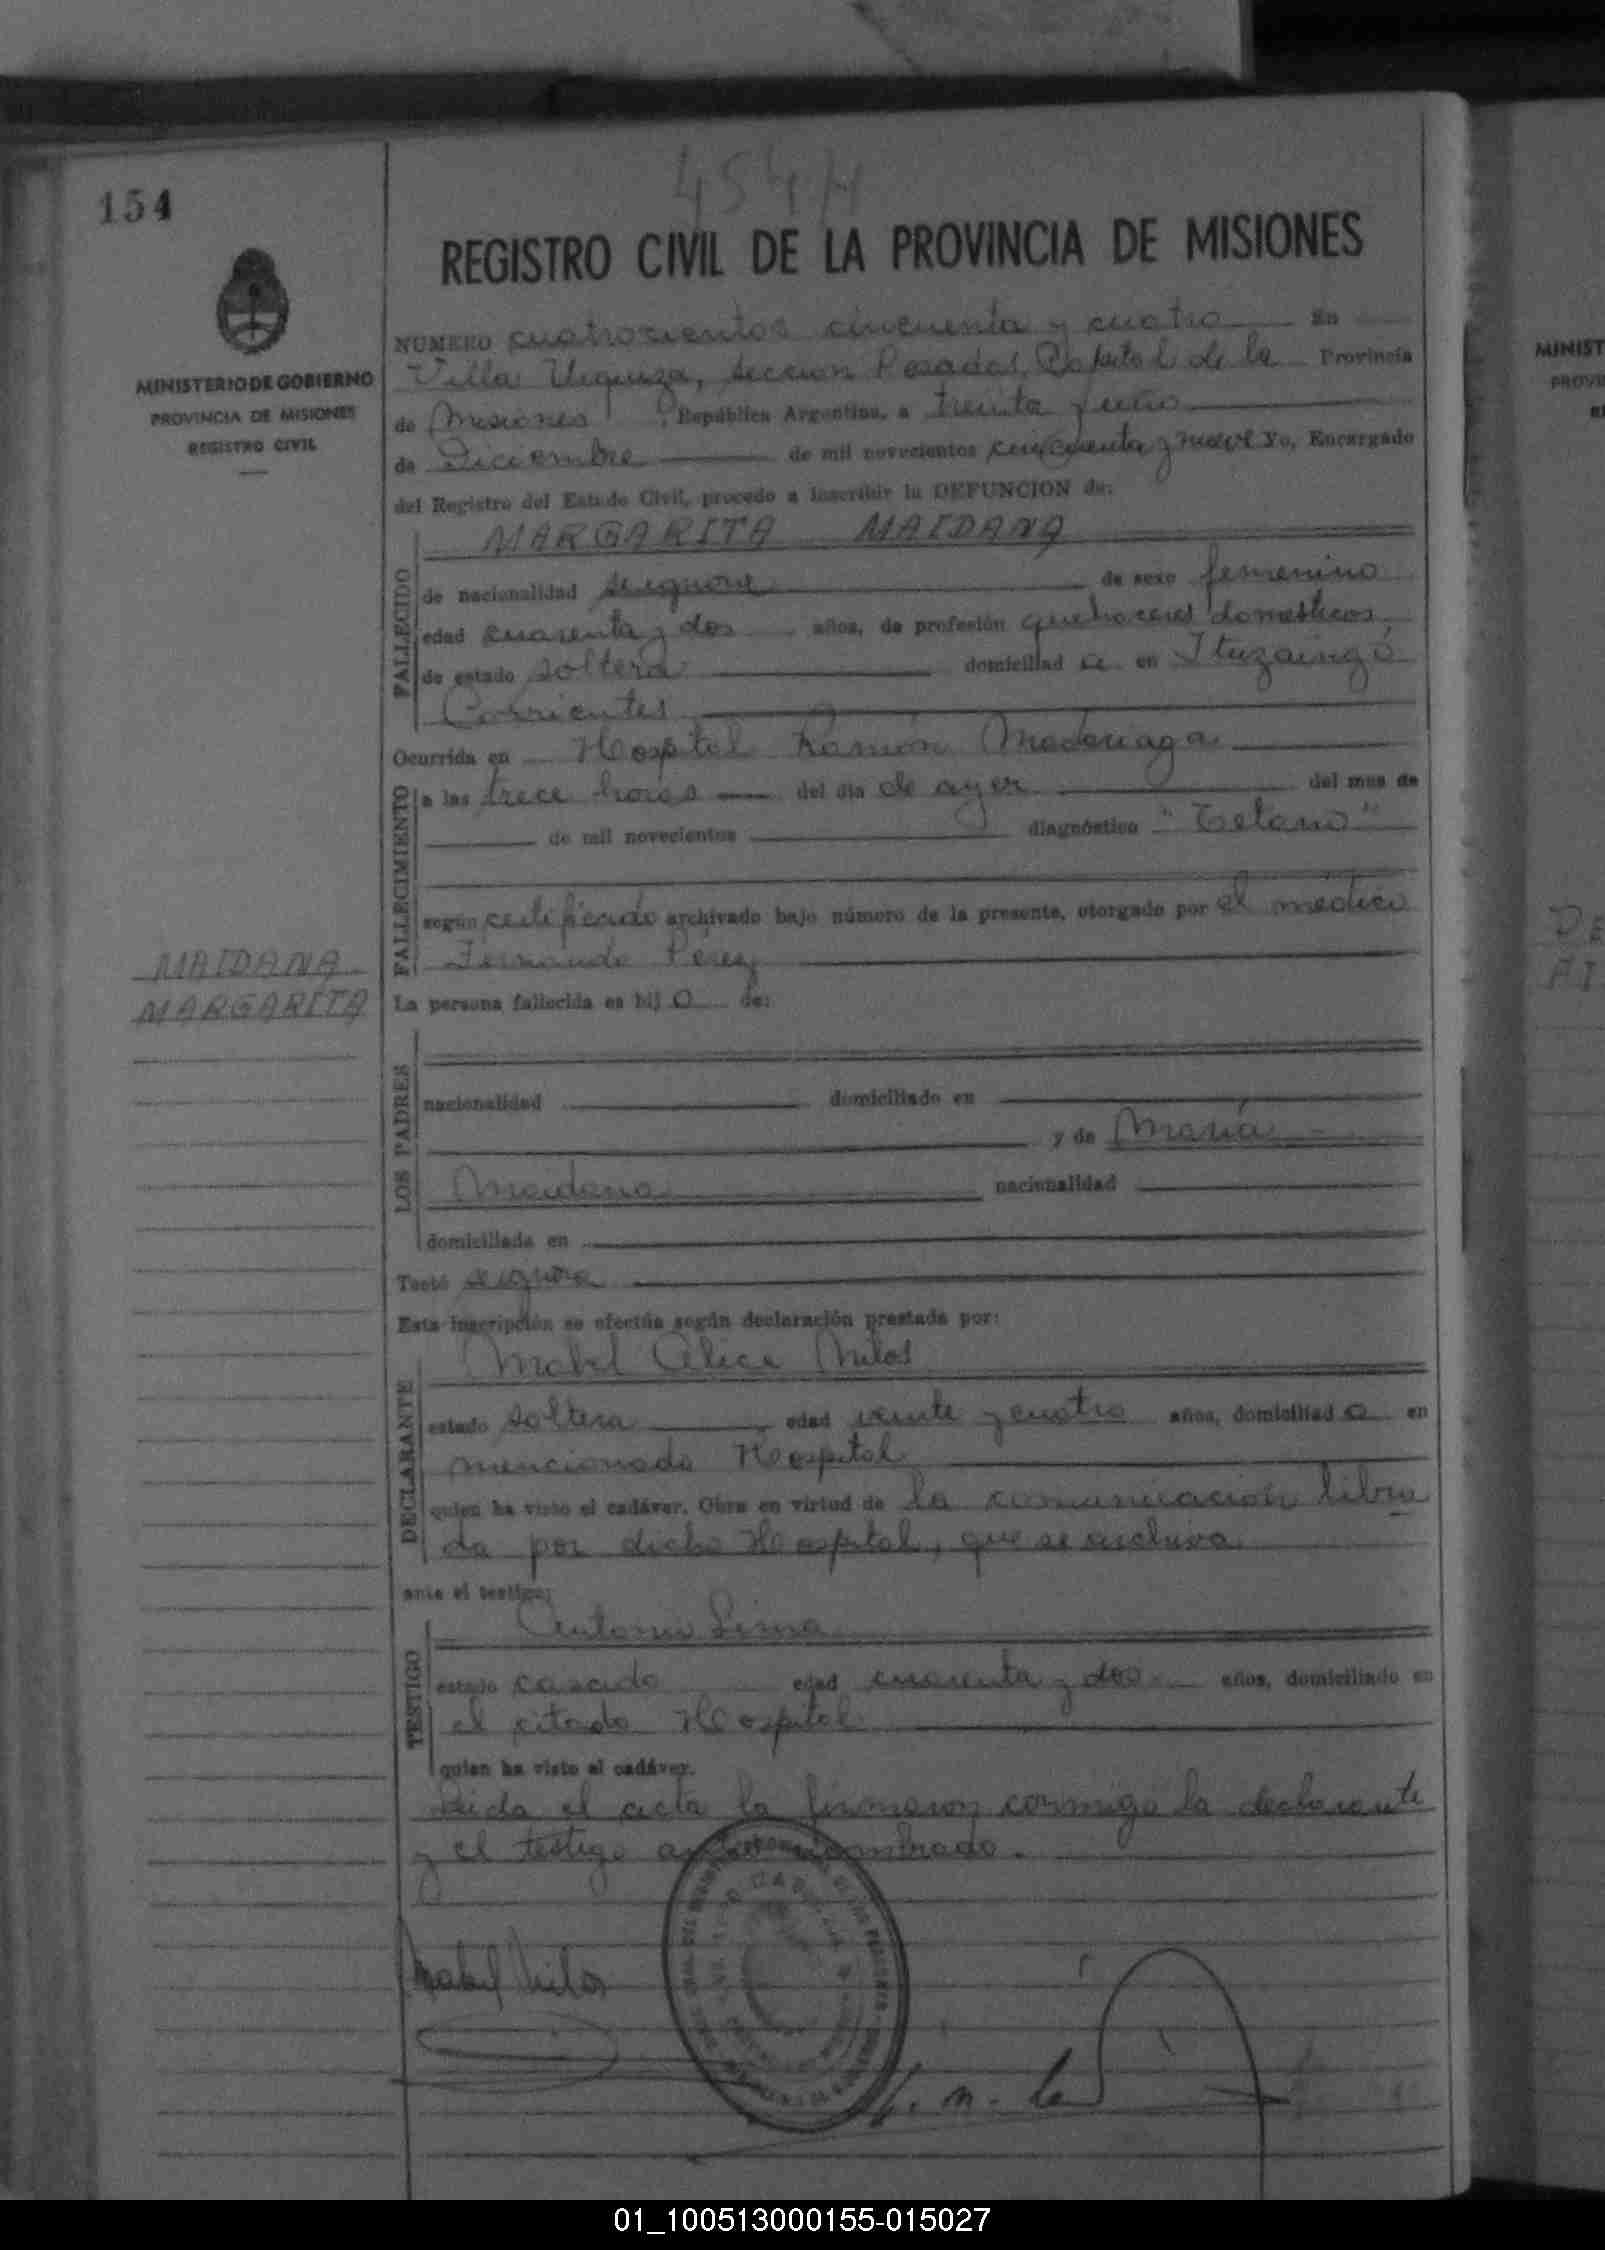 154
454 H
REGISTRO CIVIL DE LA PROVINCIA DE MISIONES
MINISTERIO DE GOBIERNO
PROVINCIA DE MISIONES
REGISTRO CIVIL
NUMERO cuatrocientos cincuenta y cuatro En
Villa Urquiza, sección Posadas, Capital de la Provincia
de Misiones, República Argentina, a treinta y uno
de Diciembre de mil novecientos cincuenta y nueve Yo, Encargado
del Registro del Estado Civil, procedo a inscribir la DEFUNCION de:
MARGARITA MAIDANA
FALLECIDO
de nacionalidad se ignora de sexo femenino
edad cuarenta y dos años, de profesión quehaceres domésticos,
de estado soltera domiciliad a en Ituzaingó
Corrientes
Ocurrida en Hospital Ramón Madariaga
FALLECIMIENTO
a las trece horas del día de ayer del mes de
de mil novecientos diagnóstico "Tetano"
según certificado archivado bajo número de la presente, otorgado por el médico
Fernando Perez
MAIDANA
MARGARITA
La persona fallecida es hij o de:
LOS PADRES
nacionalidad domiciliado en
y de María
Maidana nacionalidad
domiciliada en
Testó se ignora
Esta inscripción se efectúa según declaración prestada por:
DECLARANTE
Mabel Alice Milos
estado soltera edad veinte y cuatro años, domiciliad a en
mencionado Hospital
quien ha visto el cadáver. Obra en virtud de la comunicación libra
da por dicho Hospital, que se archiva
ante el testigo:
TESTIGO
Antonio Lima
estado casado edad cuarenta y dos años, domiciliado en
el citado Hospital
quien ha visto el cadáver.
Leida el acta la firmaron conmigo la declarante
y el testigo nombrado.
Mabel Milos
MINIST
PROVI
RE
DE
PI
01_100513000155-015027